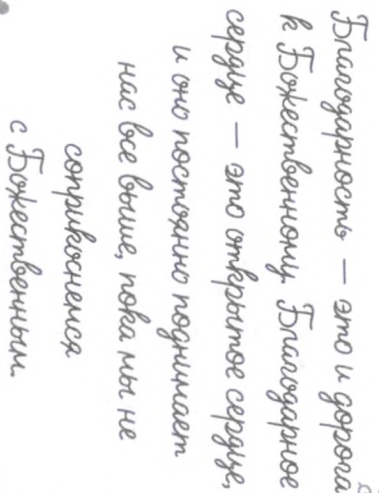 Благодарность — это и дорога
к Божественному. Благодарное
сердце — это открытое сердце,
и оно постоянно поднимает
нас все выше, пока мы не
соприкоснемся
с Божественным.